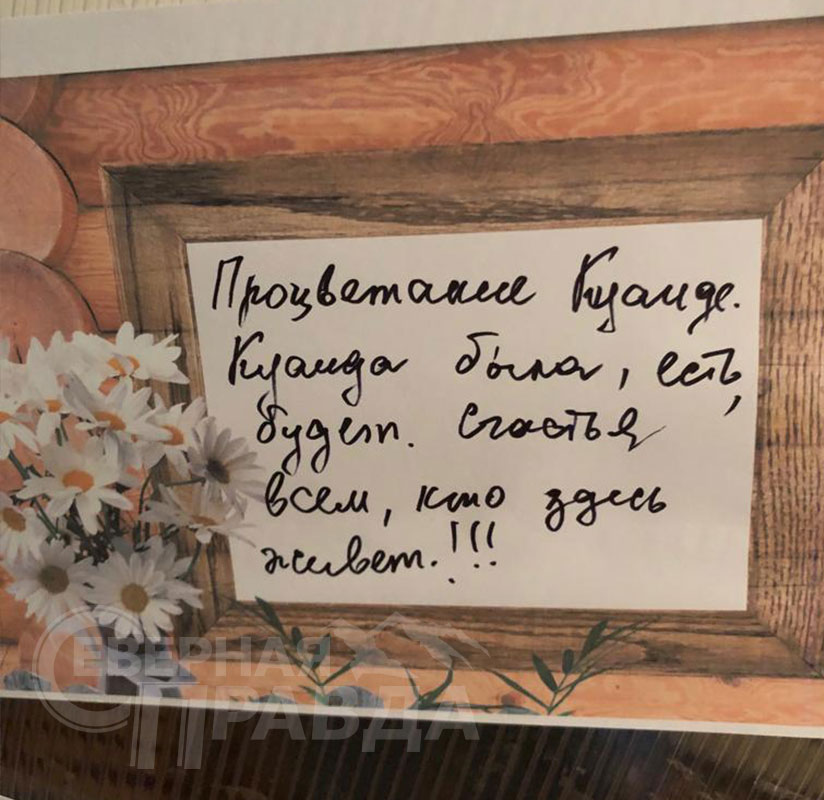 Процветание Куанде.
Куанда была, есть,
будет. Счастья
всем, кто здесь
живет.!!!
СЕВЕРНАЯ
ПРАВДА